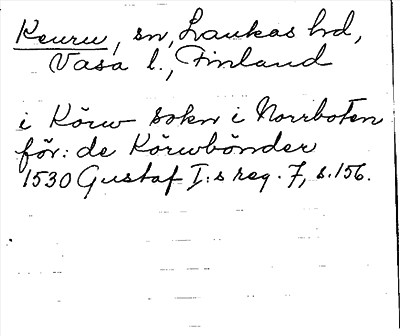 Keuru, sn, Laukas hd,
Vasa l., Finland
i Körw sokn i Norrboten
för: de Körwbönder
1530 Gustaf I:s reg. 7, s. 156.